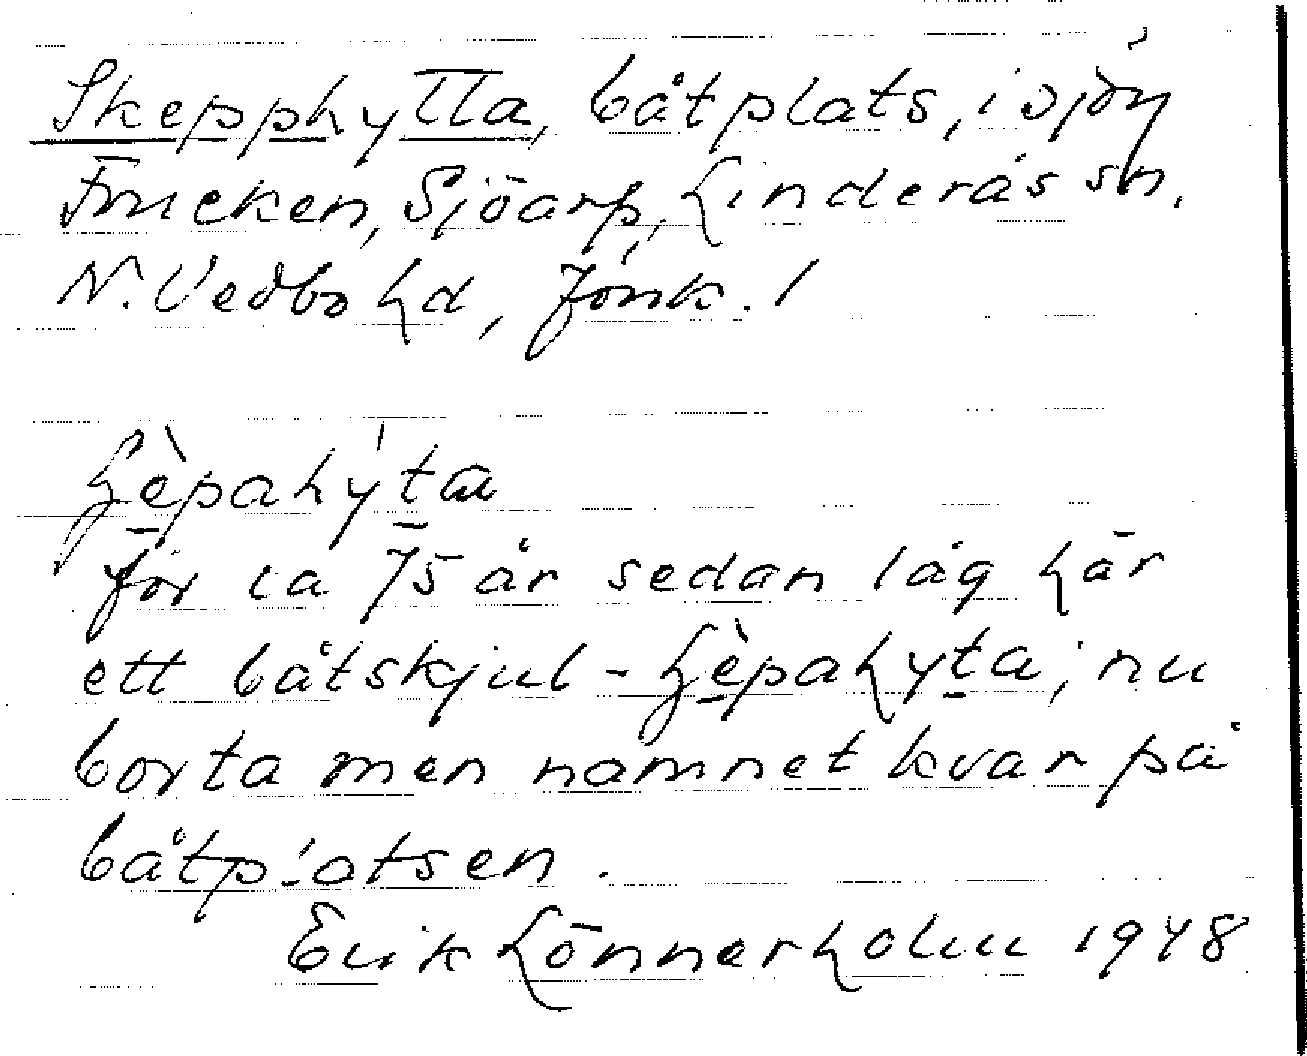 Skepphytta, båtplats, i sjön
Frucken, Sjöarp, Linderås sn.
N. Vedbo hd, Jönk. l
hytta
för ca 75 år sedan låg här
ett båtskjul - ; nu
borta men namnet kvar på
båtplatsen.
Erik Lönnerholm 1948